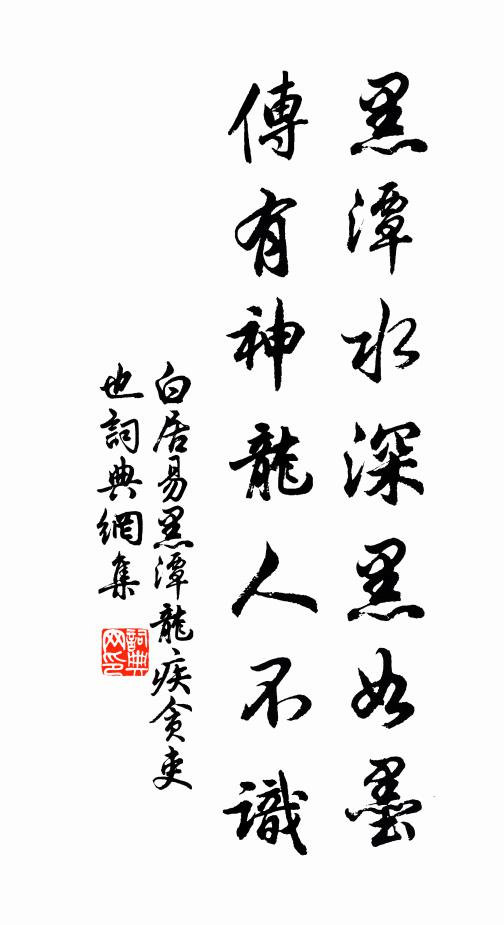 黑潭水深黑如墨
傳有神龍人不識
白居易黑潭龍疾貪吏
也詞典網集
詞典
网印